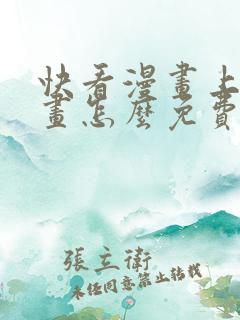 快看漫畫上
畫怎麼免費
張立衛
未經同意禁止轉載